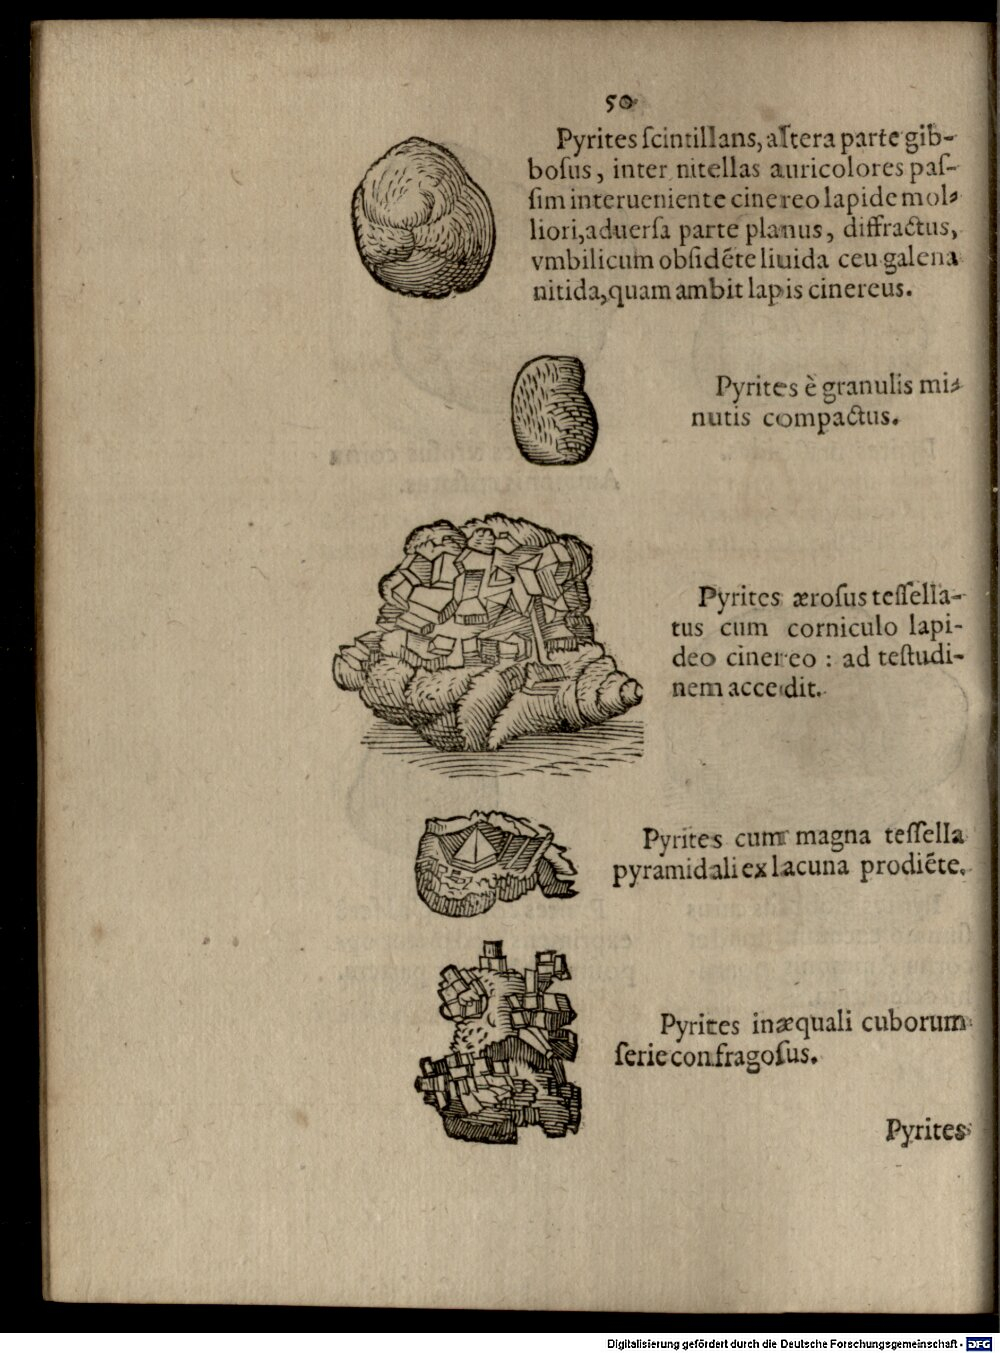 50
Pyrites ſcintillans, altera parte gib-
boſus, inter nitellas auricolores paſ-
ſim interueniente cinereo lapide mol-
liori, aduerſa parte planus, diffractus,
vmbilicum obſidẽte liuida ceu galena
nitida, quam ambit lapis cinereus.
Pyrites è granulis mi-
nutis compactus.
Pyrites æroſus teſſella-
tus cum corniculo lapi-
deo cinereo : ad teſtudi-
nem accedit.
Pyrites cum magna teſſella
pyramidali ex lacuna prodiẽte.
Pyrites inæquali cuborum
ſerie confragoſus.
Pyrites
Digitalisierung gefördert durch die Deutsche Forschungsgemeinschaft - DFG